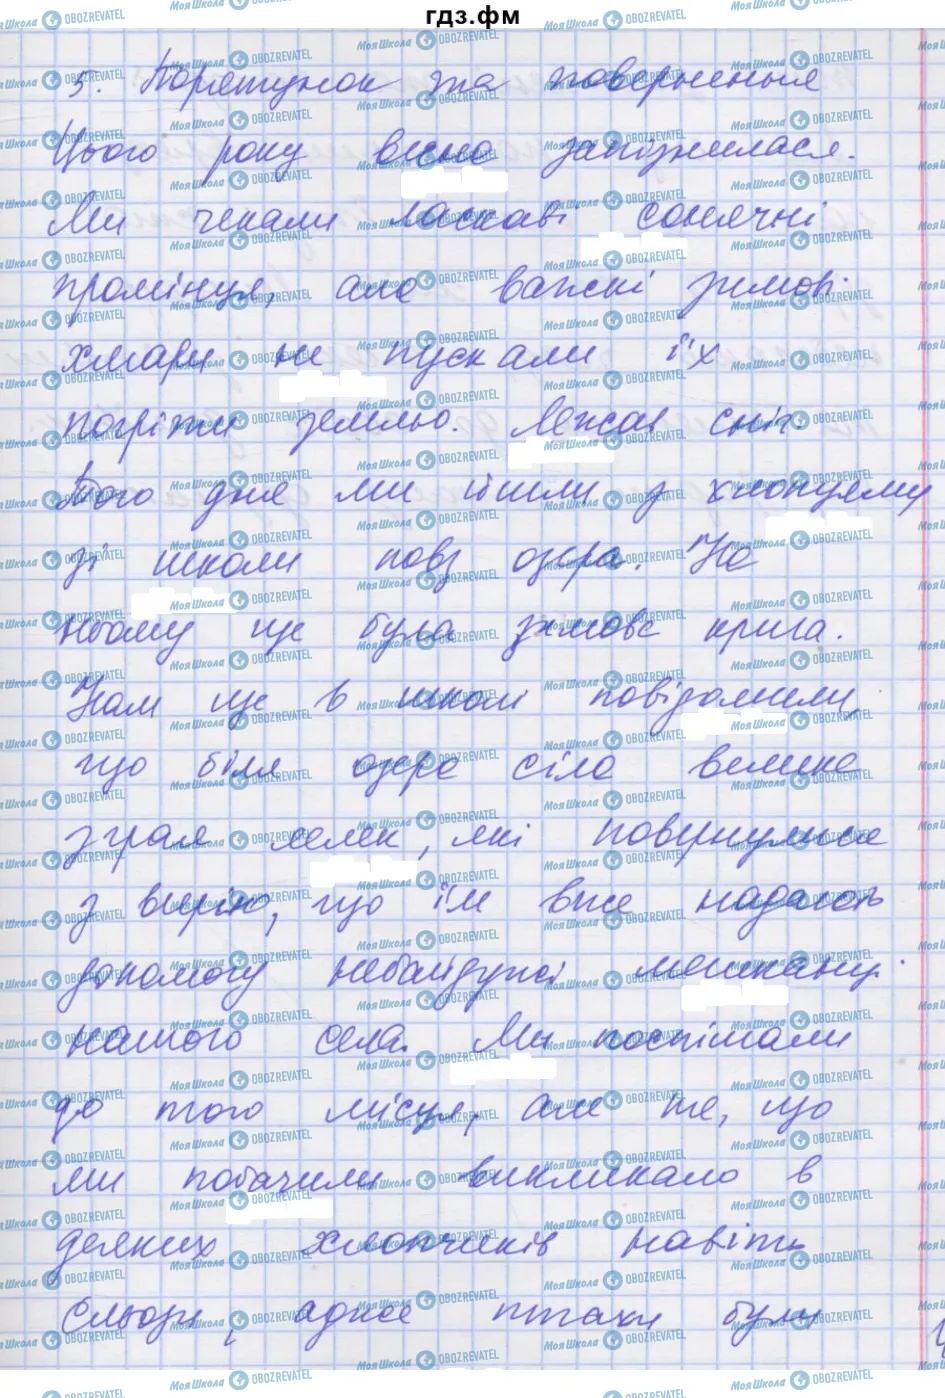 гдз.фм
5. Порятунок та повернення
Цього року весна запізнилася.
Ми чекали ласкаві сонячні
промінця, але важкі зимові
хмари не пускали їх
погріти землю. Лежав сніг.
Того дня ми йшли з хлопцями
зі школи повз озера. На
ньому ще була зимова крига.
Нам ще в школі повідомили,
що біля озера сіла велика
зграя лелек, які повернулися
з вирію, що їм вже надають
допомогу небайдужі мешканці
нашого села. Ми поспішали
до того місця, але те, що
ми побачили викликало в
деяких хлопчиків навіть
сльози, адже птахи були